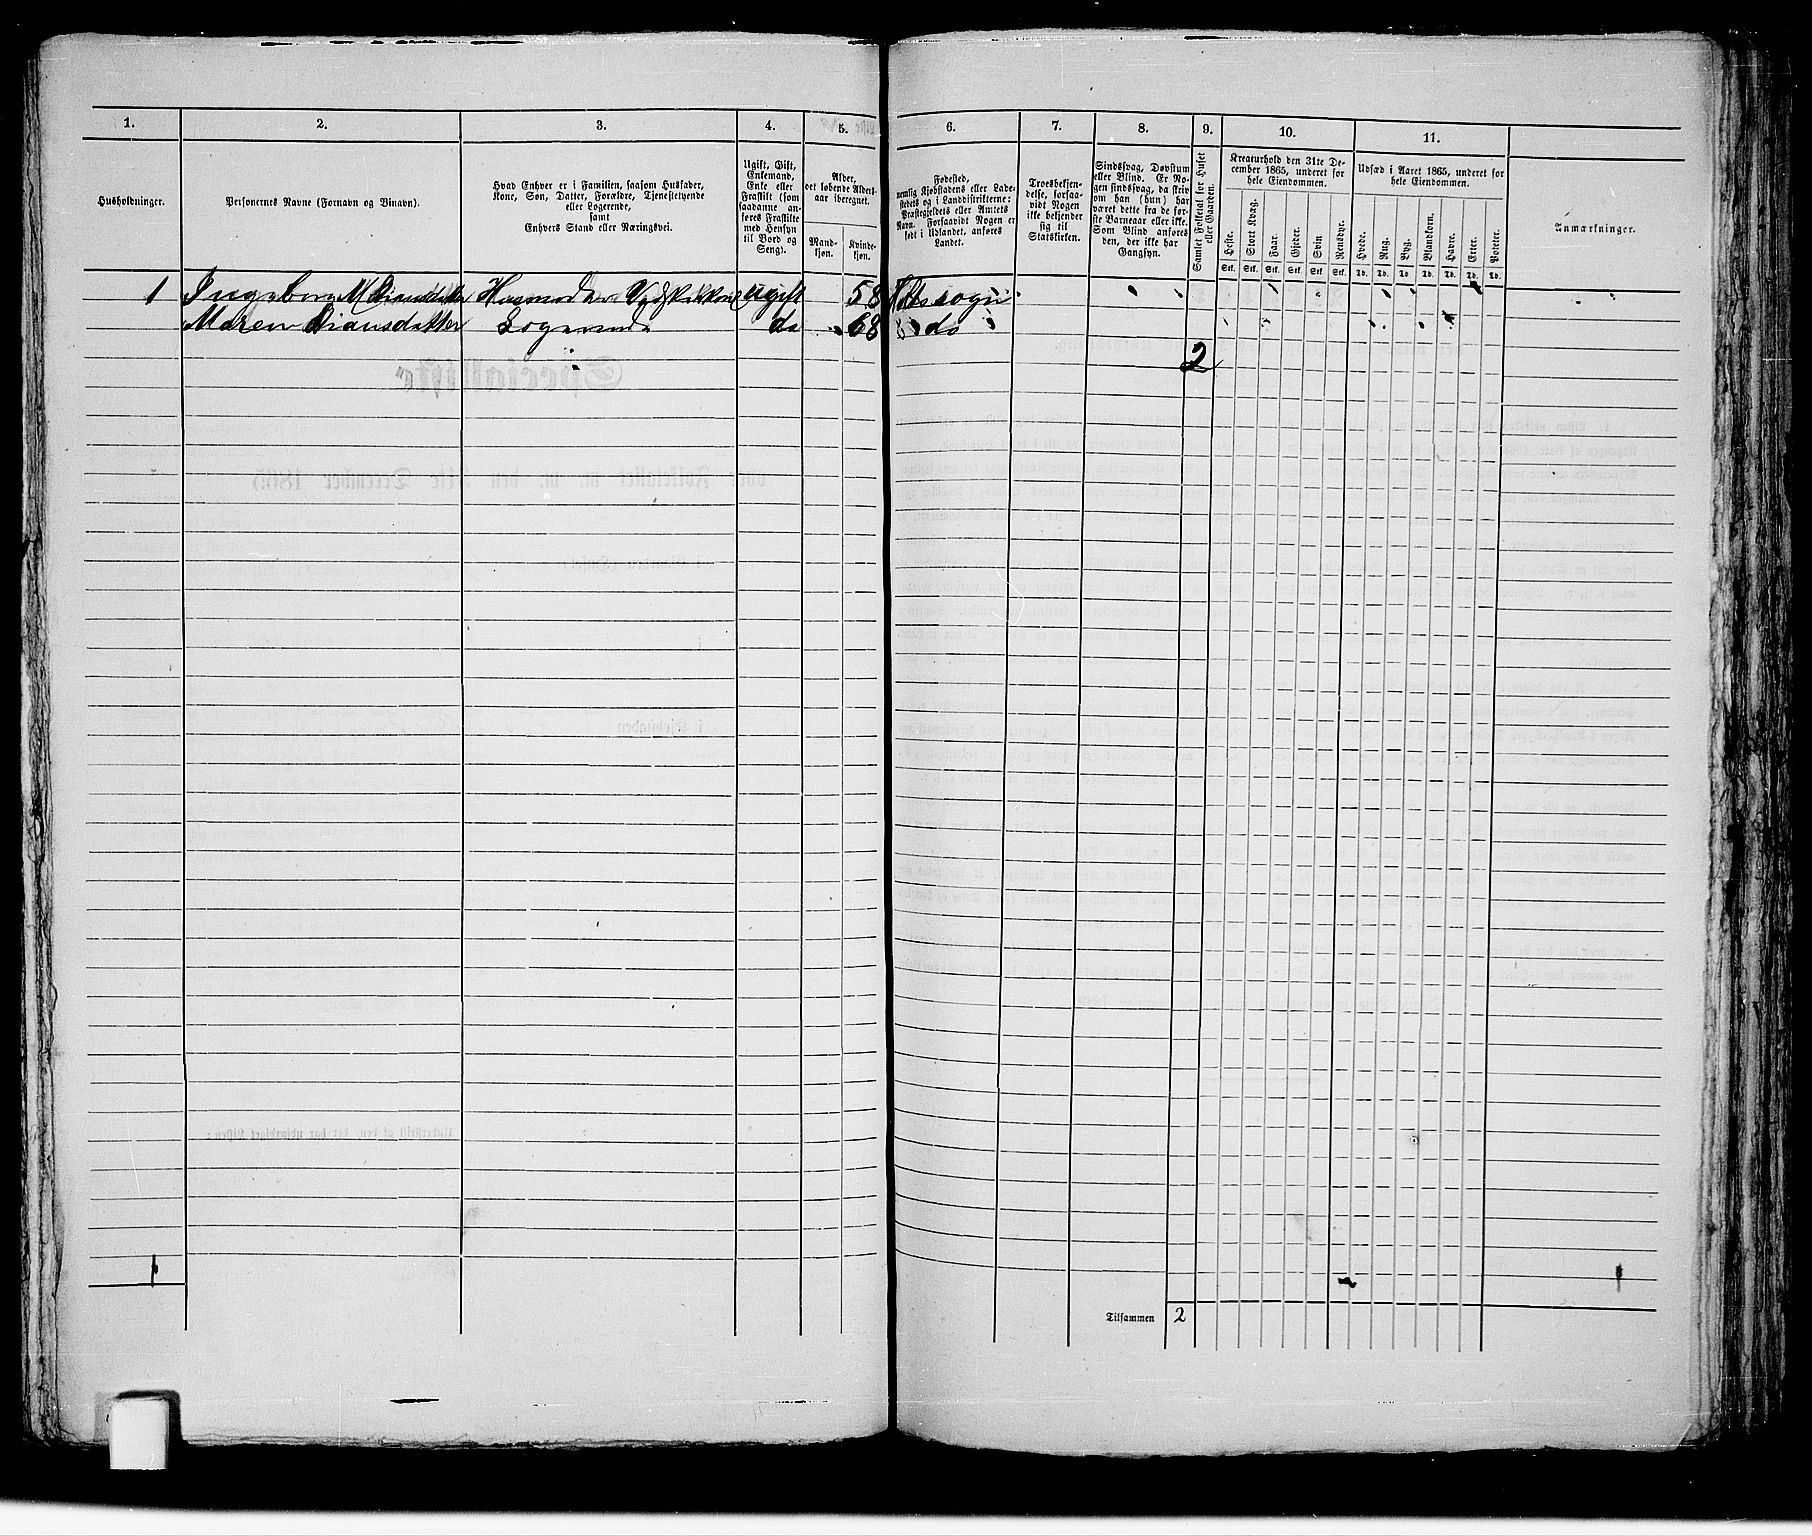 1. 2. 3. 4. 5. 6. 7. 8. 9. 10. 11.
Husholdninger.
Personernes Navne (Fornavn og Binavn).
Hvad Enhver er i Familien, saasom Husfader,
Kone, Søn, Datter, Forældre, Tjenestetyende
eller Logerende,
samt
Enhvers Stand eller Næringsvei.
Ugift, Gift,
Enkemand,
Enke eller
Fraskilt (som
saadanne an-
føres Fraskilte
med Hensyn
til Bord og
Seng).
Alder,
det løbende Alders-
aar iberegnet.
Mand-
kjøn.
Kvinde-
kjøn.
Fødested,
nemlig Kjøbstadens eller Lade-
stedets og i Landdistrikterne:
Præstegjeldets eller Amtets
Navn. Forsaavidt Nogen er
født i Udlandet, anføres
Landet.
Troesbekjen-
delse, forsaa-
vidt Nogen
ikke bekjender
sig til
Statskirken.
Sindssvag, Døvstum
eller Blind. Er No-
gen sindssvag, da skriv
om han (hun) har
været dette fra de før-
ste Barneaar eller ikke.
Som Blind anføres
den, der ikke har
Gangsyn.
Samlet Folketal for Huset
eller Gaarden.
Kreaturhold den 31te De-
cember 1865, underet for
hele Eiendommen.
Heste.
Stort Kvæg.
Faar.
Gjeder.
Svin
Rensdyr.
Stk. Stk. Stk. Stk. Stk. Stk.
Udsæd i Aaret 1865, underet for
hele Eiendommen.
Hvede.
Rug.
Byg.
Blandkorn.
Havre.
Erter.
Poteter.
Td. Td. Td. Td. Td. Td. Td.
Anmærkninger.
1 Ingeborg M ugift 58 sogn
Maren Logerende do 68 do
2
Tilsammen 2